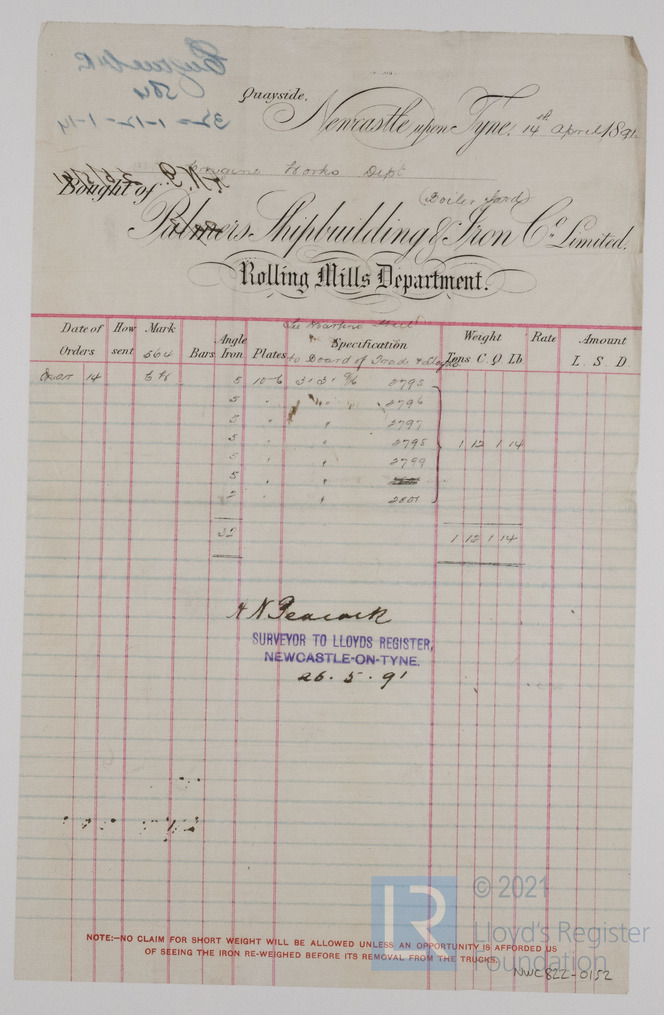 Quayside,
Newcastle upon Tyne. 14th April 1891
Engine Works Dept
Bought of
(Boiler Yard)
Palmers Shipbuilding & Iron Co. Limited.
Rolling Mills Department.
Date of Orders How sent Mark 564 Bars Angle Iron Plates Specification Weight Tons C. Q Lb. Rate Amount L. S. D.
to Board of Trade & Lloyds
14 5 10-6 3 · 3 · 9/16 2795
5 " " 2796
5 " " 2797
5 " " 2798 1 12 1 14
5 " " 2799
5 " "
2 " " 2801
32 1 12 1 14
A N Peacock
SURVEYOR TO LLOYDS REGISTER,
NEWCASTLE-ON-TYNE.
26. 5. 91
NOTE:—NO CLAIM FOR SHORT WEIGHT WILL BE ALLOWED UNLESS AN OPPORTUNITY IS AFFORDED US
OF SEEING THE IRON RE-WEIGHED BEFORE ITS REMOVAL FROM THE TRUCKS.
LR © 2021
Lloyd's Register
Foundation
NWC822-0152